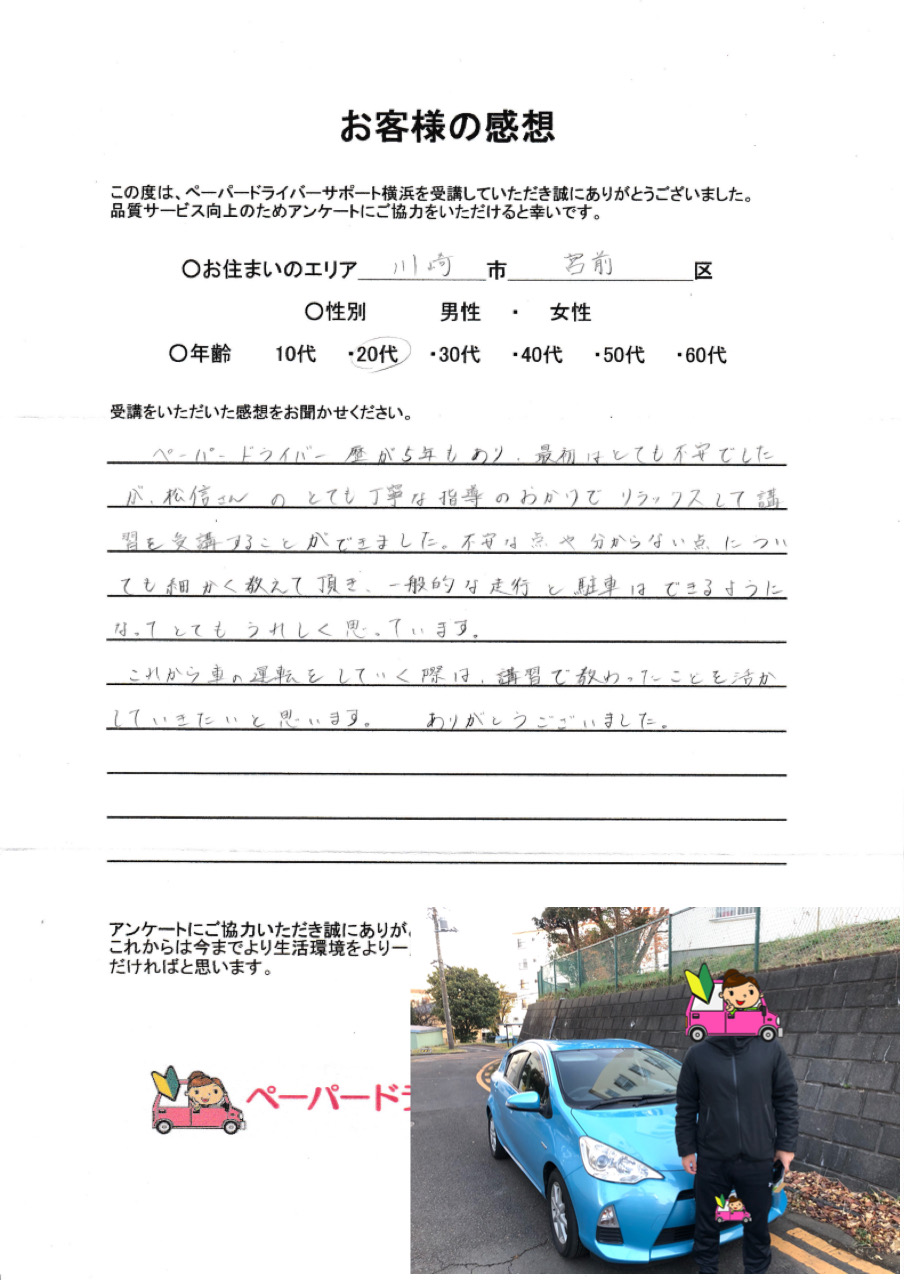 お客様の感想
この度は、ペーパードライバーサポート横浜を受講していただき誠にありがとうございました。
品質サービス向上のためアンケートにご協力をいただけると幸いです。
〇お住まいのエリア 川崎 市 宮前 区
〇性別 男性 ・ 女性
〇年齢 10代 ・20代 ・30代 ・40代 ・50代 ・60代
受講をいただいた感想をお聞かせください。
ペーパードライバー歴が5年もあり、最初はとても不安でした
が、松信さんのとても丁寧な指導のおかげでリラックスして講
習を受講することができました。不安な点や分からない点につい
ても細かく教えて頂き、一般的な走行と駐車はできるように
なってとてもうれしく思っています。
これから車の運転をしていく際は、講習で教わったことを活か
していきたいと思います。 ありがとうございました。
アンケートにご協力いただき誠にありが
これからは今までより生活環境をより一
だければと思います。
ペーパード